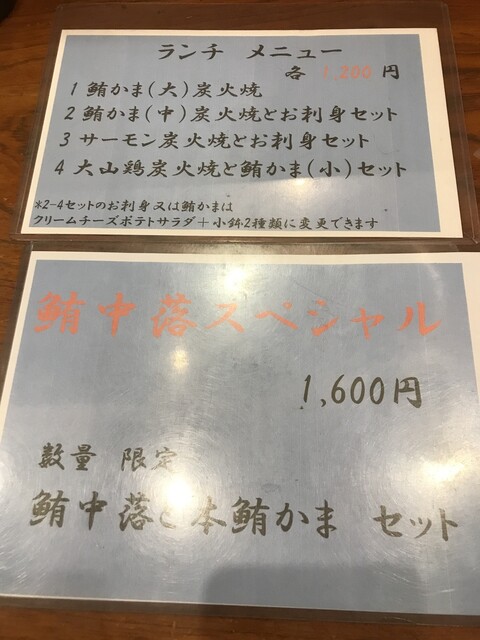 ランチ メニュー
各 1,200 円
1 鮪かま(大)炭火焼
2 鮪かま(中)炭火焼とお刺身セット
3 サーモン炭火焼とお刺身セット
4 大山鶏炭火焼と鮪かま(小)セット
*2-4セットのお刺身又は鮪かまは
クリームチーズポテトサラダ+小鉢2種類に変更できます
鮪中落スペシャル
1,600円
数量 限定
鮪中落と本鮪かま セット